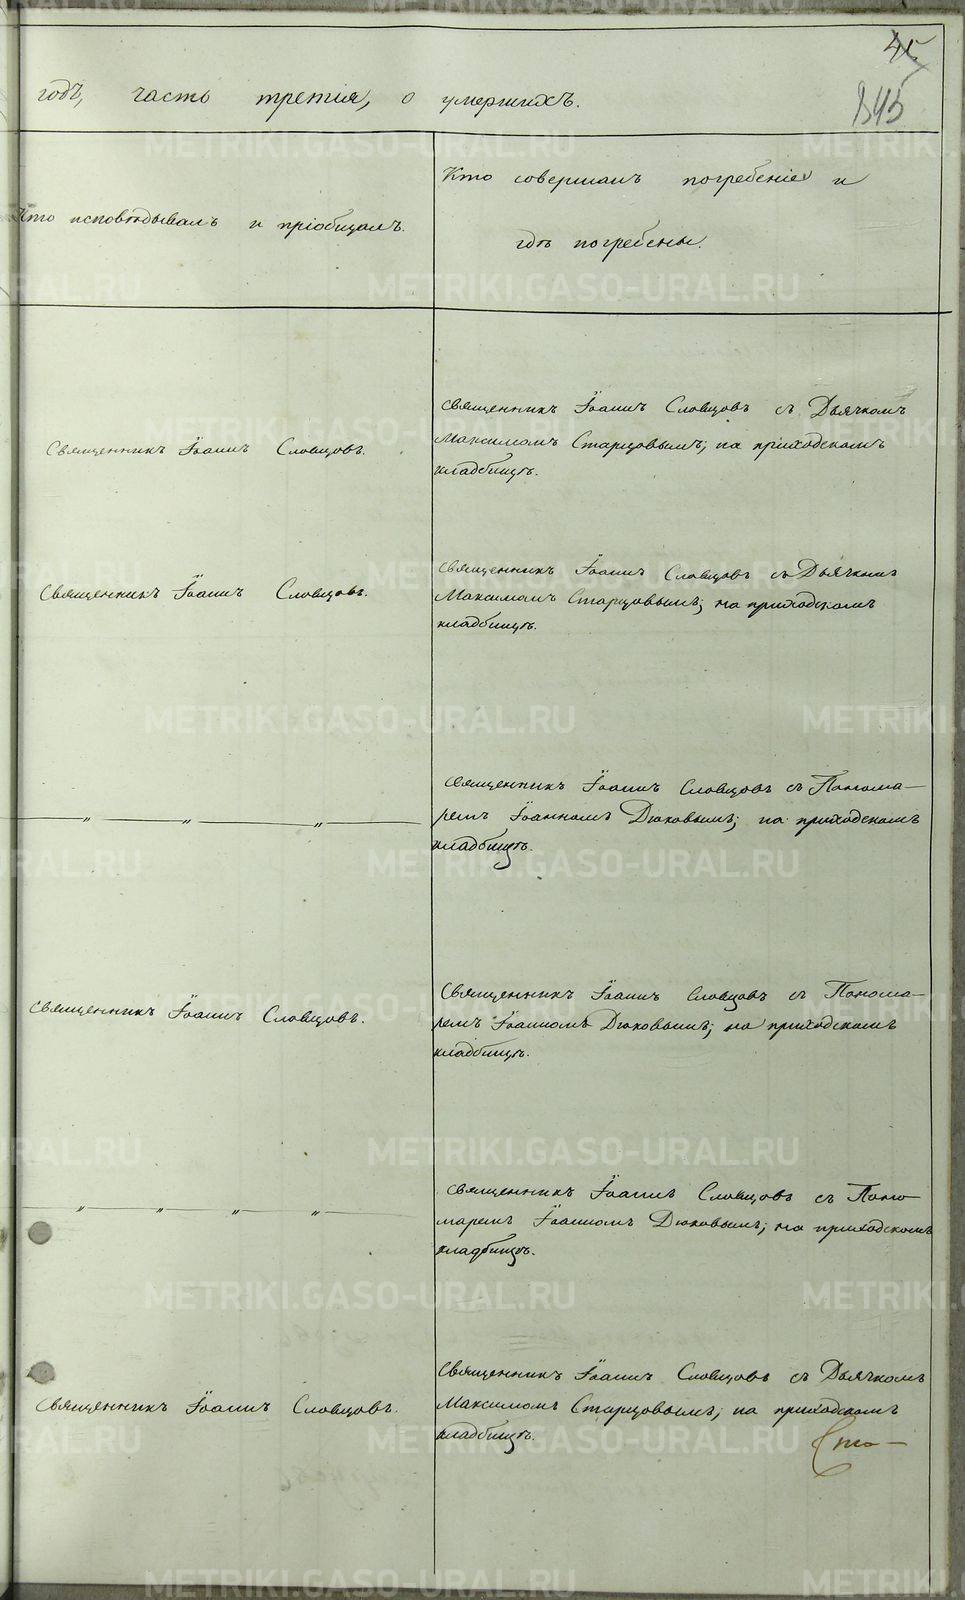 годъ, часть третія, о умершихъ.
Кто исповѣдывалъ и пріобщалъ.
Кто совершалъ погребеніе и
гдѣ погребены.
Священникъ Іоаннъ Словцовъ.
Священникъ Іоаннъ Словцовъ съ Дьячкомъ
Максимомъ Старцовымъ; на приходскомъ
кладбищѣ.
Священникъ Іоаннъ Словцовъ.
Священникъ Іоаннъ Словцовъ съ Дьячкомъ
Максимомъ Старцовымъ; на приходскомъ
кладбищѣ.
— „ — „ — „ —
Священникъ Іоаннъ Словцовъ съ Понома-
ремъ Іоанномъ Дюковымъ; на приходскомъ
кладбищѣ.
Священникъ Іоаннъ Словцовъ.
Священникъ Іоаннъ Словцовъ съ Понома-
ремъ Іоанномъ Дюковымъ; на приходскомъ
кладбищѣ.
— „ — „ — „ — „ —
Священникъ Іоаннъ Словцовъ съ Поно-
маремъ Іоанномъ Дюковымъ; на приходскомъ
кладбищѣ.
Священникъ Іоаннъ Словцовъ.
Священникъ Іоаннъ Словцовъ съ Дьячкомъ
Максимомъ Старцовымъ; на приходскомъ
кладбищѣ.
METRIKI.GASO-URAL.RU